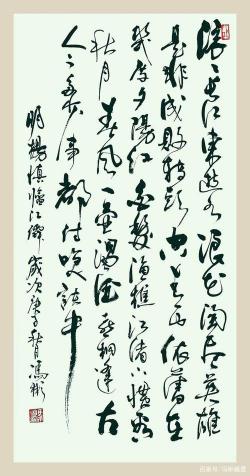 滚滚长江东逝水浪花淘尽英雄
是非成败转头空青山依旧在
几度夕阳红白发渔樵江渚上惯看
秋月春风一壶浊酒喜相逢古
今多少事都付笑谈中
明杨慎临江仙岁次庚子秋月冯彬